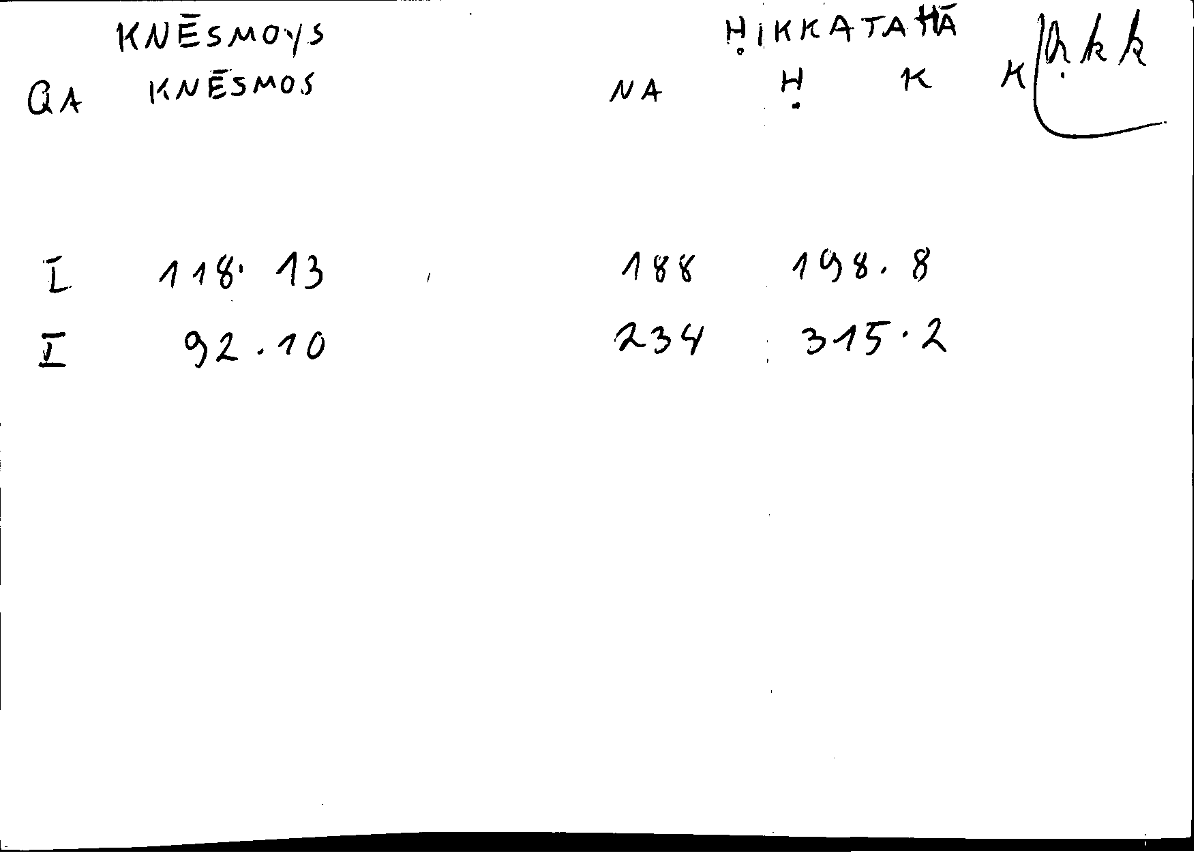 KNĒSMOYS ḤIKKATAHĀ
QA KNĒSMOS NA Ḥ K K ḥkk
I 118. 13 188 198. 8
I 92. 10 234 315. 2